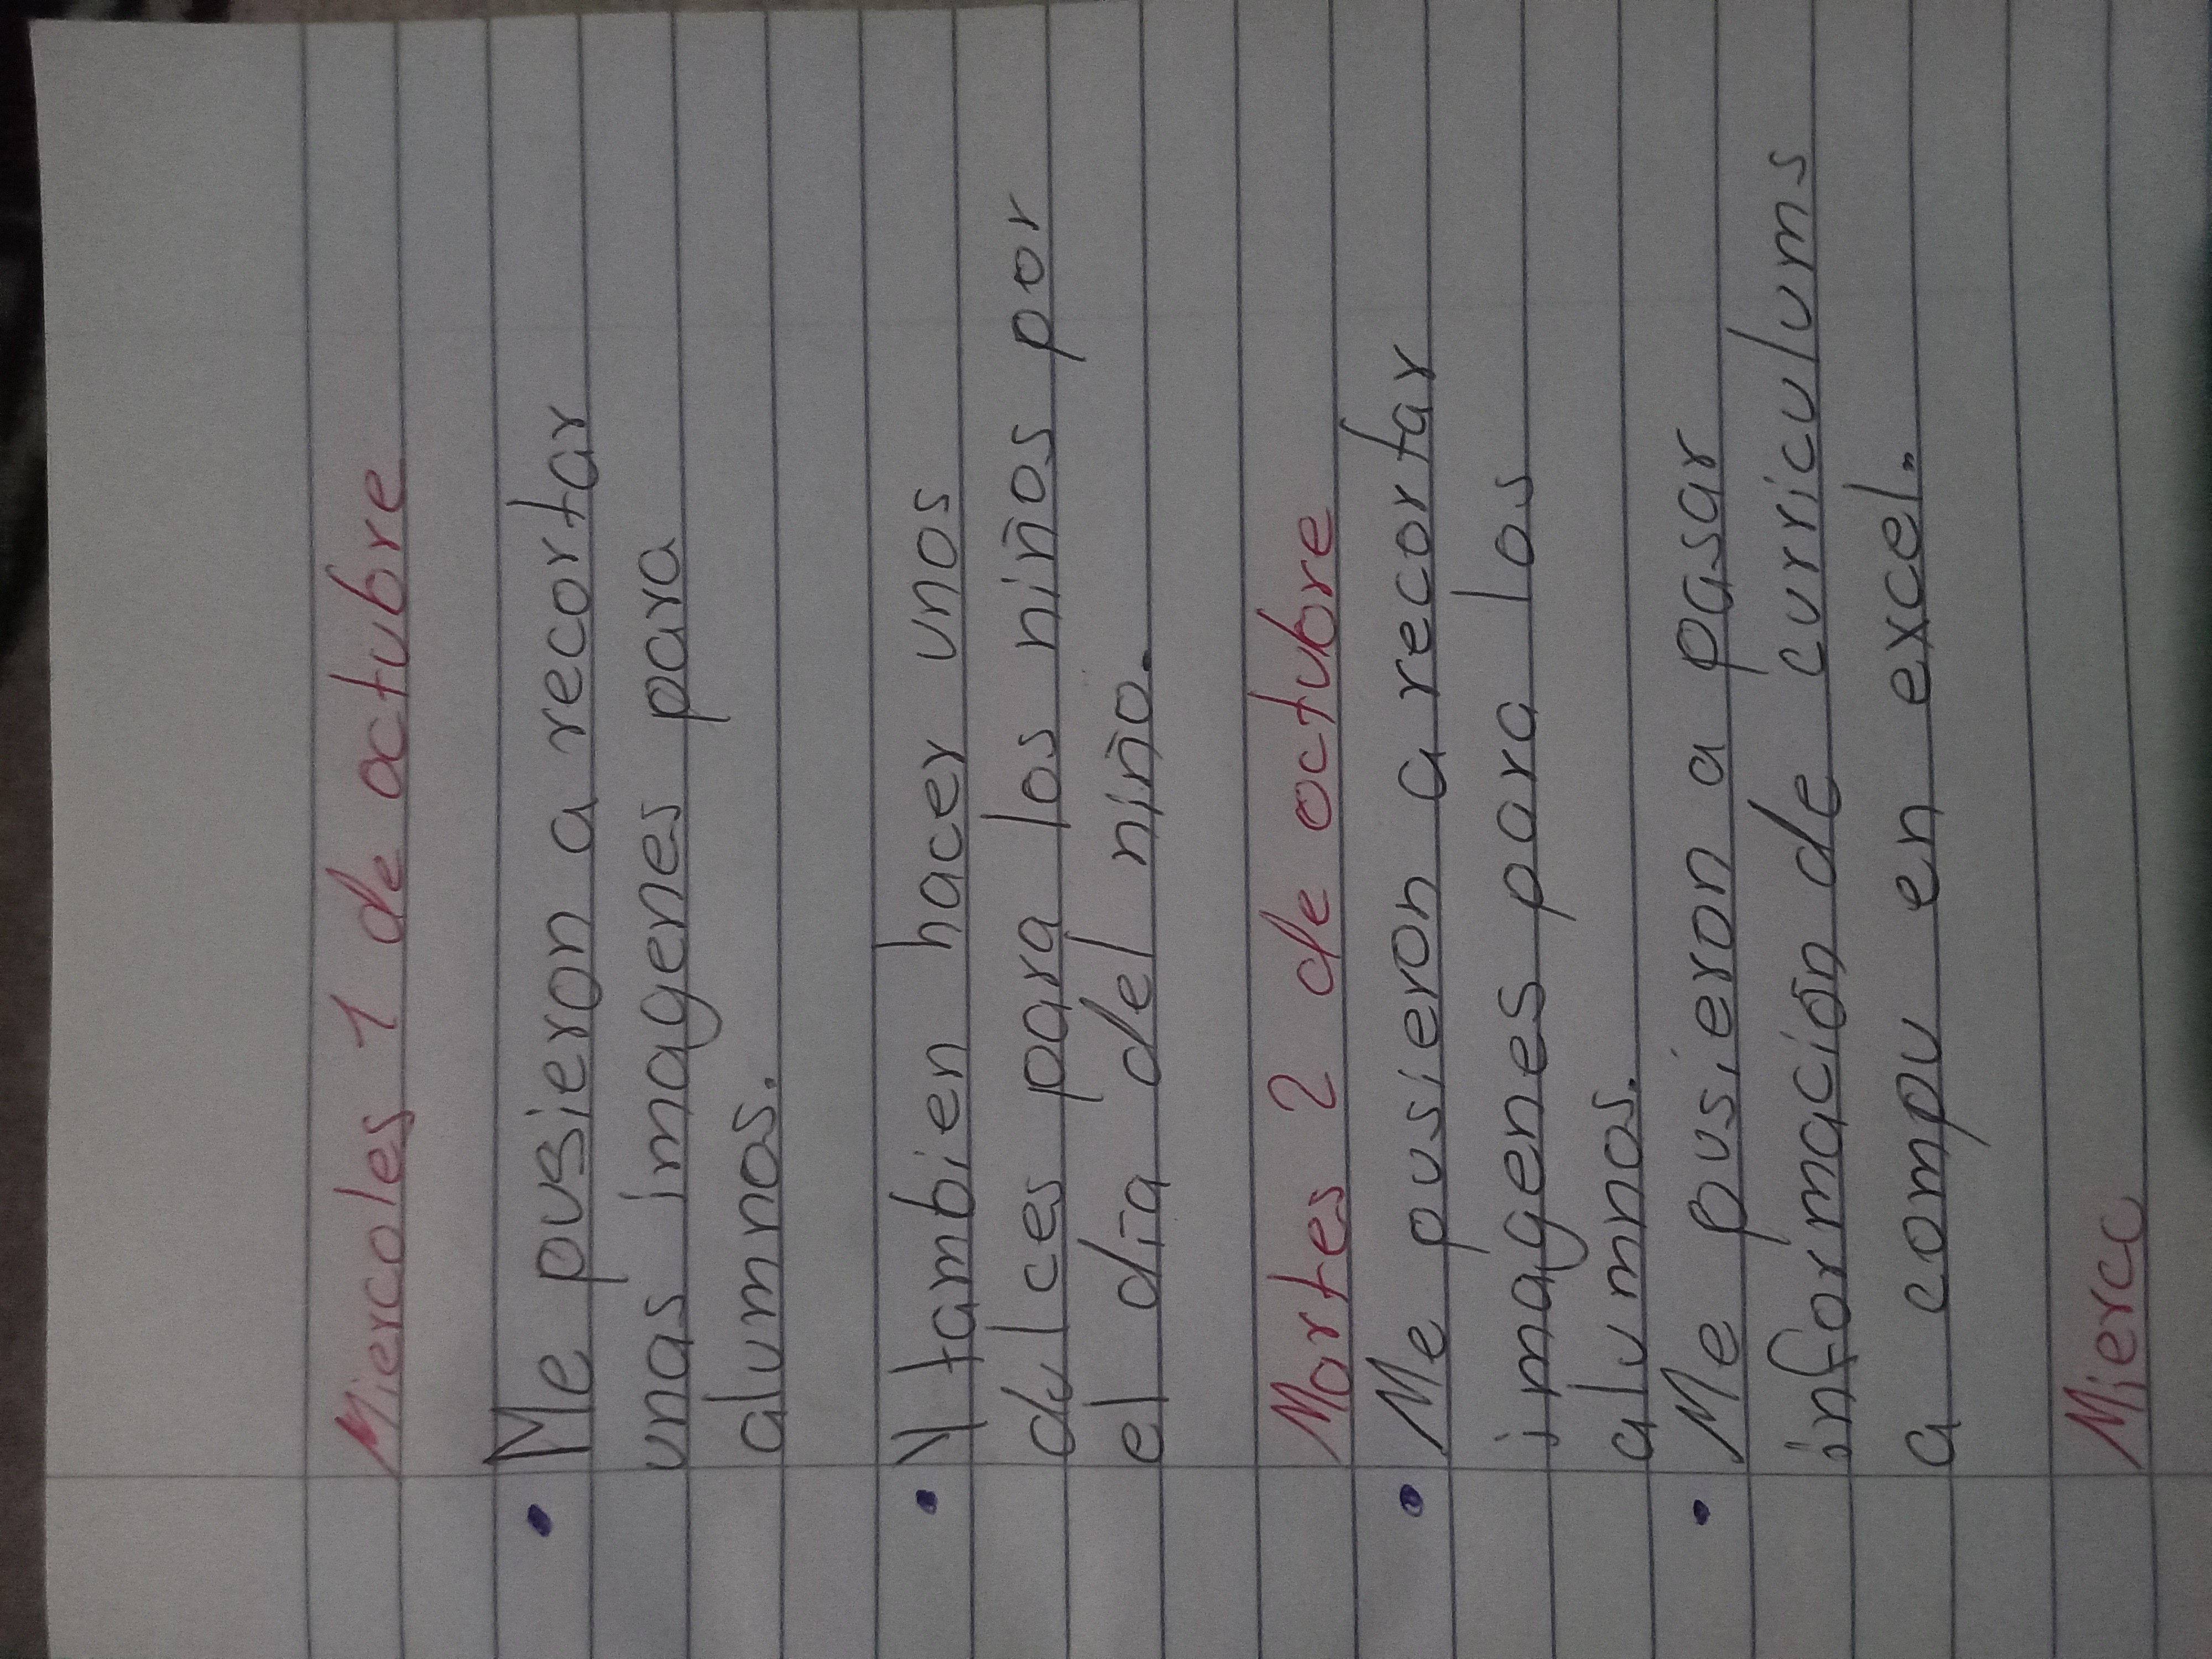 Miercoles 1 de octubre
• Me pusieron a recortar
unas imagenes para
alumnos.
• Y tambien hacer unos
dulces para los niños por
el dia del niño.
Martes 2 de octubre
• Me pusieron a recortar
imagenes para los
alumnos.
• Me pusieron a pasar
información de curriculums
a compu en excel.
Mierco